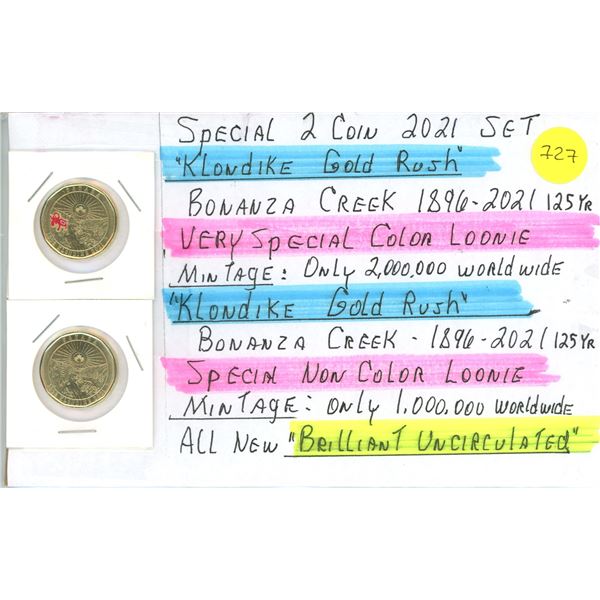 SPECIAL 2 COIN 2021 SET
"KLONDIKE GOLD RUSH"
727
BONANZA CREEK 1896-2021 125YR
VERY SPECIAL COLOR LOONIE
MINTAGE: ONLY 2,000,000 WORLDWIDE
"KLONDIKE GOLD RUSH"
BONANZA CREEK - 1896-2021 125YR
SPECIAL NON COLOR LOONIE
MINTAGE: ONLY 1,000,000 WORLDWIDE
ALL NEW "BRILLIANT UNCIRCULATED"